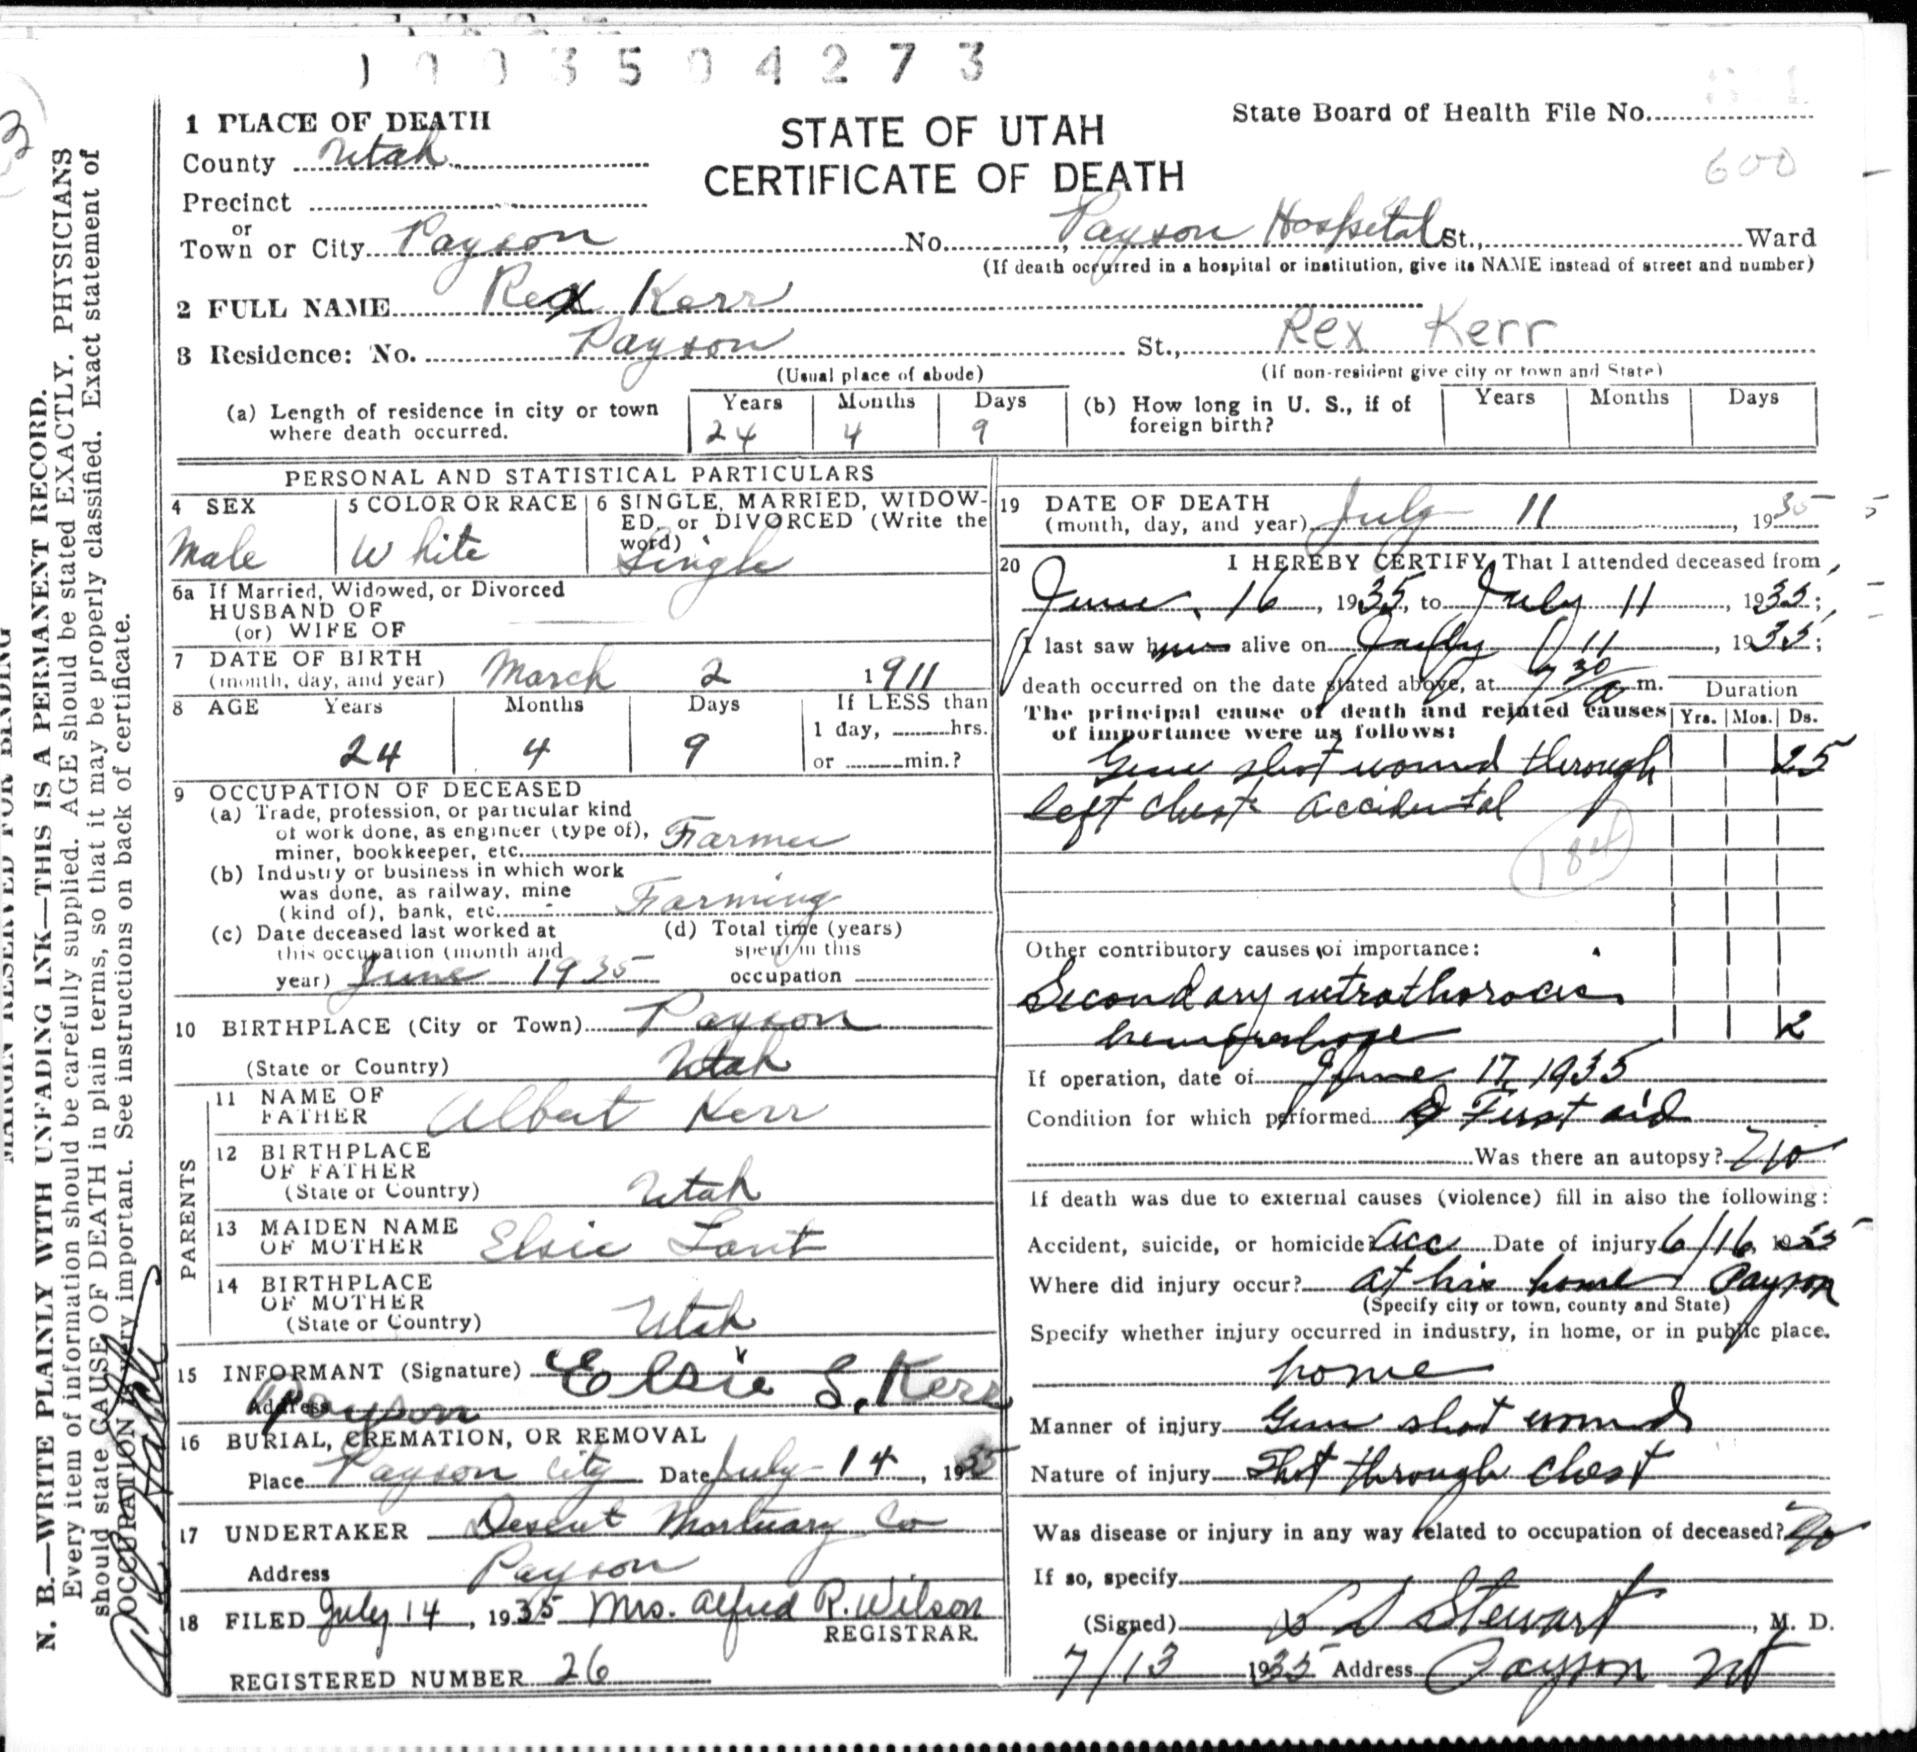 1003504273
1 PLACE OF DEATH
County Utah
Precinct
or
Town or City Payson No. Payson Hospital St., Ward
(If death occurred in a hospital or institution, give its NAME instead of street and number)
STATE OF UTAH
CERTIFICATE OF DEATH
State Board of Health File No.
600
2 FULL NAME Rex Kerr
3 Residence: No. Payson St., Rex Kerr
(Usual place of abode) (If non-resident give city or town and State)
(a) Length of residence in city or town where death occurred. Years 24 Months 4 Days 9
(b) How long in U. S., if of foreign birth? Years Months Days
PERSONAL AND STATISTICAL PARTICULARS
4 SEX Male
5 COLOR OR RACE White
6 SINGLE, MARRIED, WIDOWED, or DIVORCED (Write the word) Single
6a If Married, Widowed, or Divorced
HUSBAND OF
(or) WIFE OF
7 DATE OF BIRTH
(month, day, and year) March 2 1911
8 AGE Years Months Days If LESS than
24 4 9 1 day, hrs.
or min.?
9 OCCUPATION OF DECEASED
(a) Trade, profession, or particular kind
of work done, as engineer (type of),
miner, bookkeeper, etc. Farmer
(b) Industry or business in which work
was done, as railway, mine
(kind of), bank, etc. Farming
(c) Date deceased last worked at
this occupation (month and
year) June 1935
(d) Total time (years)
spent in this
occupation
10 BIRTHPLACE (City or Town) Payson
(State or Country) Utah
PARENTS
11 NAME OF
FATHER Albert Kerr
12 BIRTHPLACE
OF FATHER
(State or Country) Utah
13 MAIDEN NAME
OF MOTHER Elsie Lant
14 BIRTHPLACE
OF MOTHER
(State or Country) Utah
15 INFORMANT (Signature) Elsie L. Kerr
Address Payson
16 BURIAL, CREMATION, OR REMOVAL
Place Payson City Date July 14, 1935
17 UNDERTAKER Deseret Mortuary Co
Address Payson
18 FILED July 14, 1935 Mrs. Alfred R. Wilson
REGISTRAR.
REGISTERED NUMBER 26
19 DATE OF DEATH
(month, day, and year) July 11, 1935
20 I HEREBY CERTIFY, That I attended deceased from
June 16, 1935, to July 11, 1935;
I last saw him alive on July 11, 1935;
death occurred on the date stated above, at 7 30 a m.
The principal cause of death and related causes
of importance were as follows:
Duration
Yrs. Mos. Ds.
Gun shot wound through 25
left chest accidental
184
Other contributory causes of importance:
Secondary intrathoracic
hemorrhage 2
If operation, date of June 17, 1935
Condition for which performed First aid
Was there an autopsy? No
If death was due to external causes (violence) fill in also the following:
Accident, suicide, or homicide? Acc Date of injury 6/16, 1935
Where did injury occur? at his home Payson
(Specify city or town, county and State)
Specify whether injury occurred in industry, in home, or in public place.
home
Manner of injury Gun shot wound
Nature of injury Shot through chest
Was disease or injury in any way related to occupation of deceased? No
If so, specify
(Signed) L D Stewart, M. D.
7/13 1935 Address Payson Ut
MARGIN RESERVED FOR BINDING
N. B.—WRITE PLAINLY WITH UNFADING INK—THIS IS A PERMANENT RECORD.
Every item of information should be carefully supplied. AGE should be stated EXACTLY. PHYSICIANS
should state CAUSE OF DEATH in plain terms, so that it may be properly classified. Exact statement of
OCCUPATION is very important. See instructions on back of certificate.